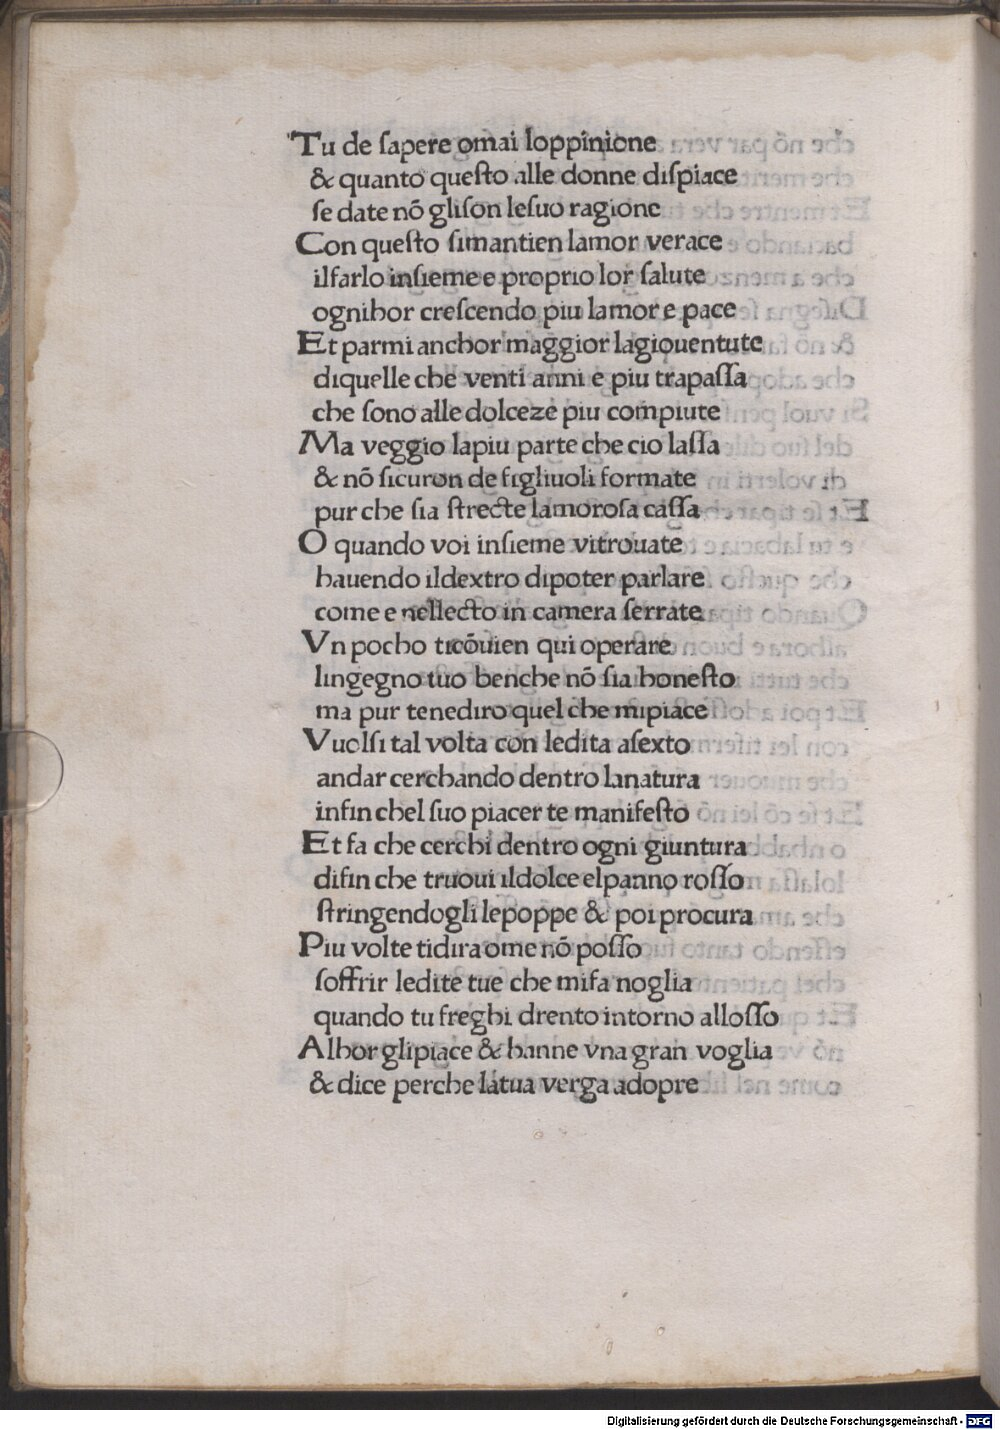 Tu de ſapere omai loppinione
& quanto queſto alle donne diſpiace
ſe date nõ gliſon leſuo ragione
Con queſto ſimantien lamor verace
ilfarlo inſieme e proprio lor ſalute
ognihor creſcendo piu lamor e pace
Et parmi anchor maggior lagiouentute
diquelle che venti anni e piu trapaſſa
che ſono alle dolceze piu compiute
Ma veggio lapiu parte che cio laſſa
& nõ ſicuron de figliuoli formate
pur che ſia ſtrecte lamoroſa caſſa
O quando voi inſieme vitrouate
hauendo ildextro dipoter parlare
come e nellecto in camera ſerrate
Vn pocho ticõuien qui operare
lingegno tuo benche nõ ſia honeſto
ma pur tenediro quel che mipiace
Vuolſi tal volta con ledita aſexto
andar cerchando dentro lanatura
infin chel ſuo piacer te manifeſto
Et fa che cerchi dentro ogni giuntura
difin che truoui ildolce elpanno roſſo
ſtringendogli lepoppe & poi procura
Piu volte tidira ome nõ poſſo
ſoffrir ledite tue che mifa noglia
quando tu freghi drento intorno alloſſo
Alhor glipiace & hanne vna gran voglia
& dice perche latua verga adopre
Digitalisierung gefördert durch die Deutsche Forschungsgemeinschaft - DFG